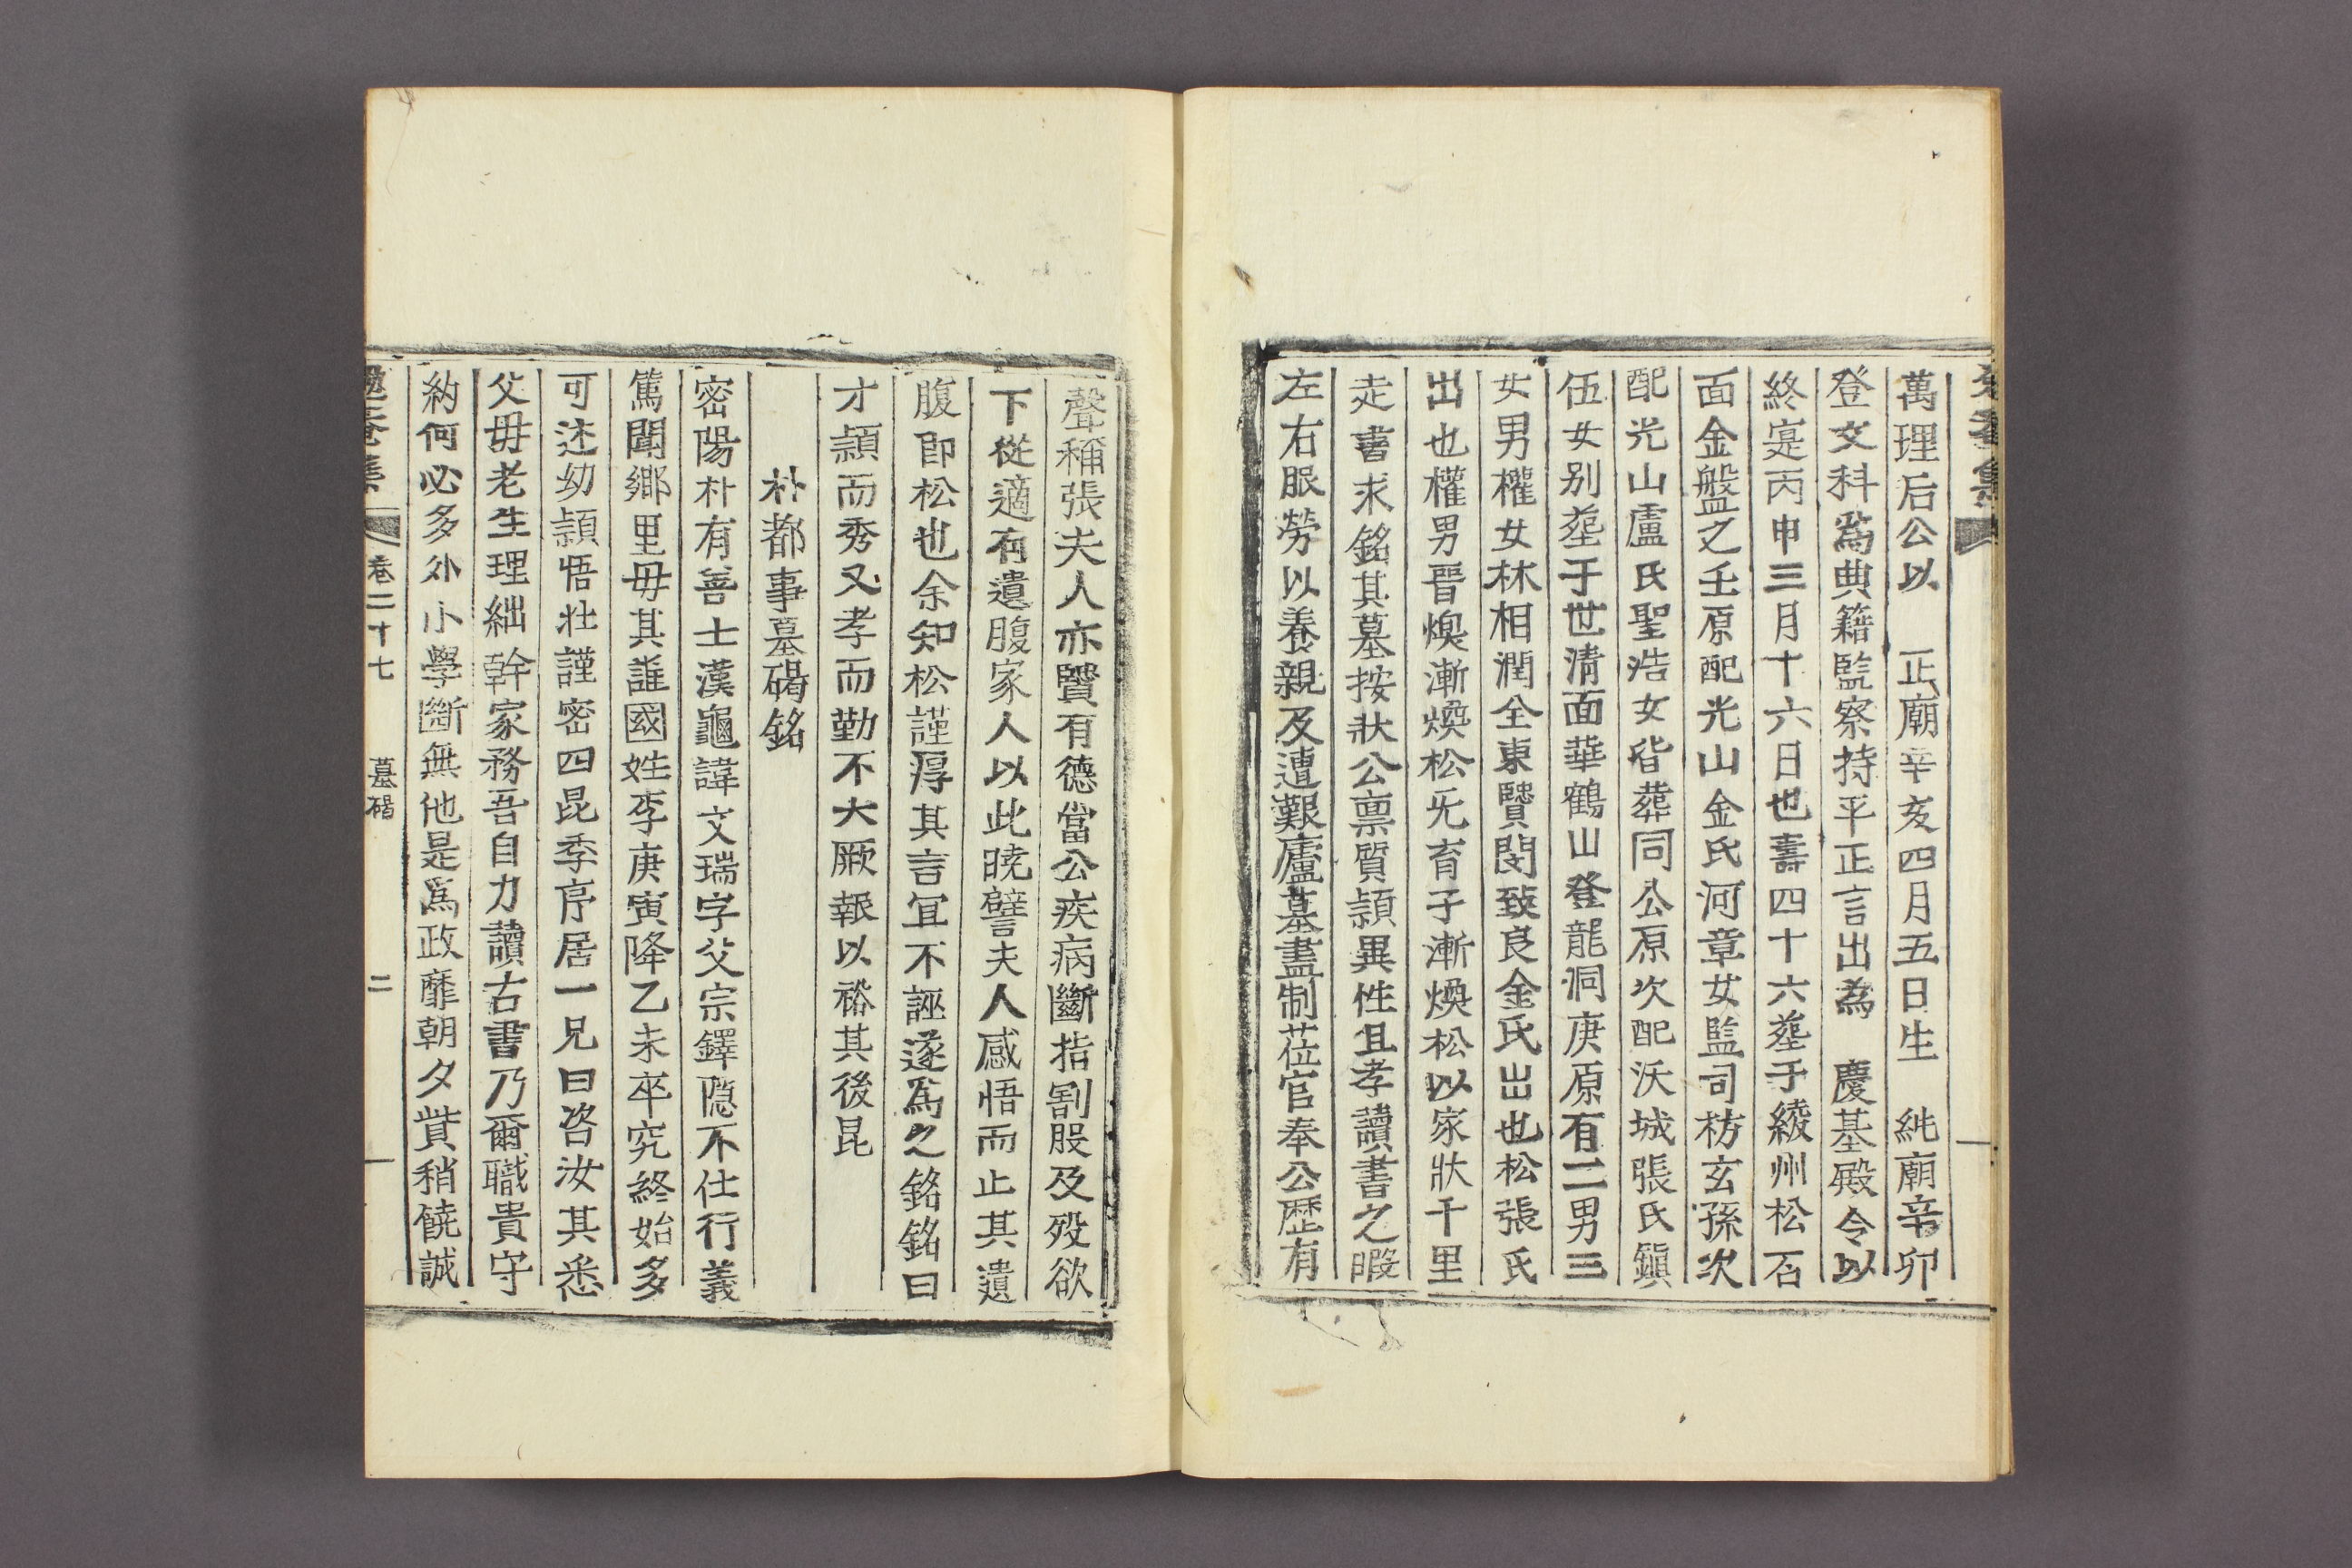 萬理后公以 正廟辛亥四月五日生 純廟辛卯
登文科爲典籍監察持平正言出為 慶基殿令以
終寔丙申三月十六日也壽四十六葬于綾州松石
面金盤之壬原配光山金氏河章女監司枋玄孫次
配光山盧氏聖浩女皆葬同公原次配沃城張氏鎭
伍女别葬于世淸面華鶴山登龍洞庚原有二男三
女男權女林相潤全東賢閔致良金氏出也松張氏
出也權男晋煥漸煥松旡育子漸煥松以家狀千里
走書求銘其墓按狀公禀質頴異性且孝讀書之暇
左右服勞以養親及遭艱廬墓盡制莅官奉公歷有
聲稱張夫人亦賢有德當公疾病斷指割股及歿欲
下從適有遺腹家人以此曉譬夫人感悟而止其遺
腹即松也余知松謹厚其言宜不誣遂爲之銘銘曰
才頴而秀又孝而勤不大厥報以裕其後昆
朴都事墓碣銘
密陽朴有善士漢龜諱文瑞字父宗鐸隐不仕行義
篤聞鄉里毋其誰國姓李庚寅降乙未卒究終始多
可述幼頴悟壯謹密四昆季序居一兄曰咨汝其悉
父毋老生理絀幹家務吾自力讀古書乃爾職貴守
約何必多外小學斷無他是爲政靡朝夕貲稍饒誠
卷二十七 墓碣 二